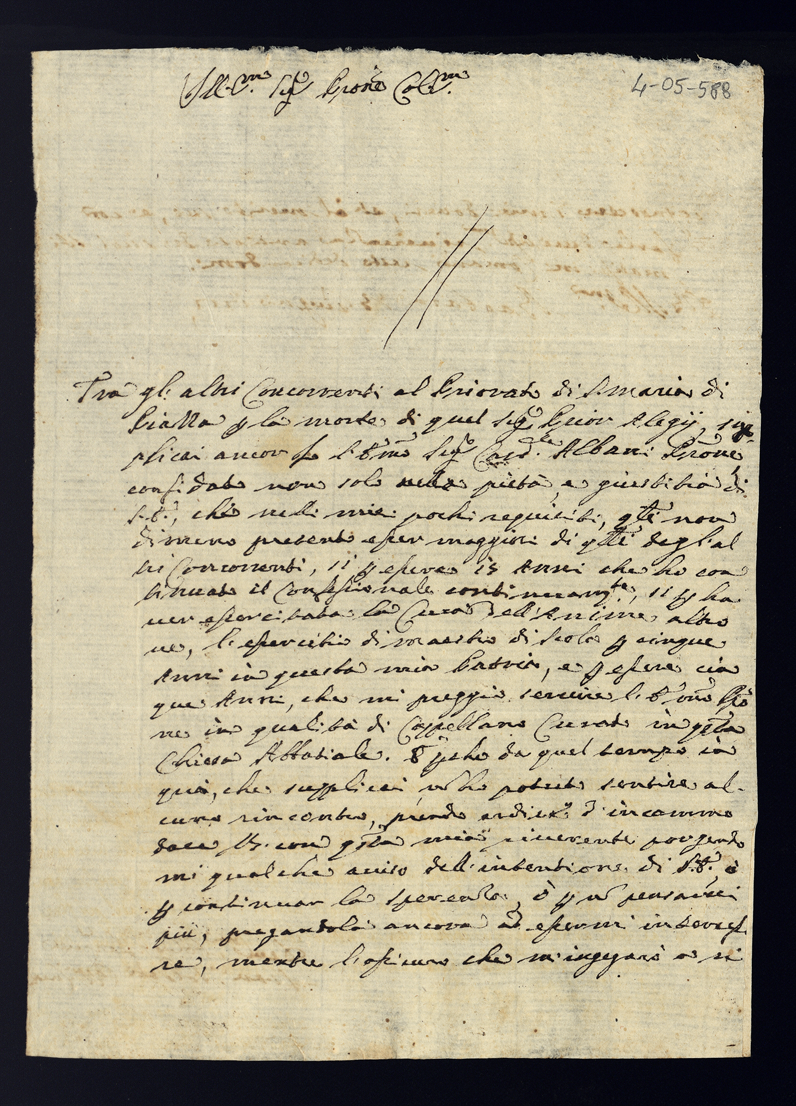 Ill.mo Sig.re Prone Col.mo
4-05-588
Tra gl'altri Concorrenti al Priorato di S. Maria di
Piazza p la morte di quel Sig.r Prior Alegij, sup-
plicai ancor Io l'E.mo Sig.r Card.le Albani Prone,
confidato non solo nella pietà, e giustitia di
S.E., che nelli miei pochi requisiti, q.li non
dimeno presento esser maggiori di q.lli degl'al
tri Concorrenti, sì p essere 15 Anni che ho con
tinuato il Confessionale continuam.te, sì p ha
ver esercitata la Cura dell'Anime altro
ve, l'esercitio di maestro di Scola p cinque
Anni in questa mia Patria, e p essere cin
que Anni, che mi preggio servire l'E.mo Pro
ne in qualità di Cappellano Curato in q.sta
Chiesa Abbatiale. E p che da quel tempo in
quà, che supplicai, nò hò potuto sentire al-
cuno rincontro, prendo ardire d'incommo
dare V.S. con q.sta mia riverente porgendo
mi qualche aviso dell'intentione di S.E., ò
p continuar la speranza, ò p nò pensarci
più, pregandola ancora ad essermi interces
re, mentre l'assicuro che m'ingegnarò a ri